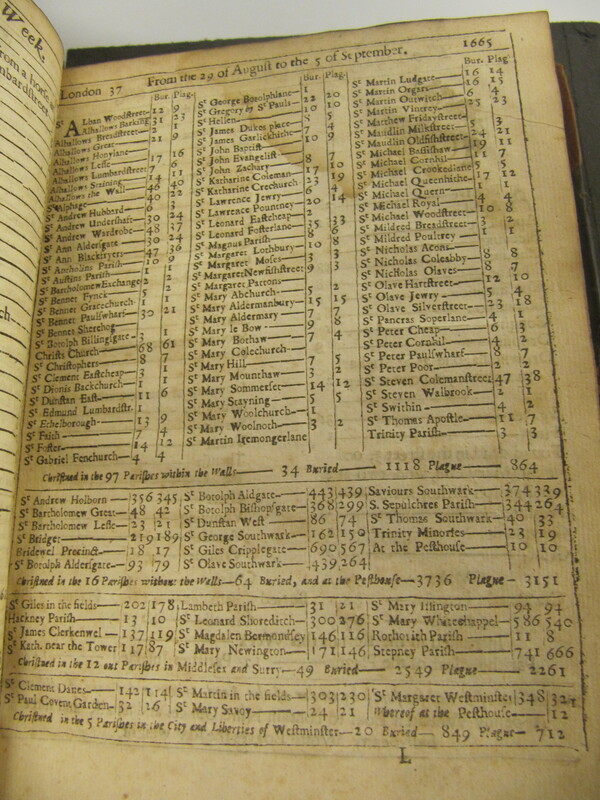 Week.
London 37 From the 29 of August to the 5 of September. 1665
Bur. Plag.
St Alban Woodstreet 12 9
Alhallows Barking 31 23
Alhallows Breadstreet 2 1
Alhallows Great 21 9
Alhallows Honylane
Alhallows Lesse 17 16
Alhallows Lumbardstreet 7 6
Alhallows Staining 14 11
Alhallows the Wall 46 40
St Alphage
St Andrew Hubbard
St Andrew Undershaft 30 24
St Andrew Wardrobe 48 37
St Ann Aldersgate 30 24
St Ann Blackfryers 47 36
St Antholins Parish
St Austins Parish 1 1
St Bartholomew Exchange 2 2
St Bennet Fynck 5 1
St Bennet Gracechurch 1 1
St Bennet Paulswharf 30 21
St Bennet Sherehog
St Botolph Billingsgate 3
Christs Church 68 61
St Christophers 8 7
St Clement Eastcheap 3 1
St Dionis Backchurch 1
St Dunstan East 11 6
St Edmund Lumbardstr. 1
St Ethelborough 13 9
St Faith 7 4
St Foster 14 12
St Gabriel Fenchurch 4 4
Bur. Plag.
St George Botolphlane 1
St Gregory by St Pauls 22 20
St Hellen 10 10
St James Dukes place 5 4
St James Garlickhithe 7 4
St John Baptist 10 9
St John Evangelist
St John Zachary 8 7
St Katharine Coleman 17 10
St Katharine Creechurch 23 19
St Lawrence Jewry 4
St Lawrence Pountney 20 14
St Leonard Eastcheap 2
St Leonard Fosterlane 35 33
St Magnus Parish 8 6
St Margaret Lothbury 10 8
St Margaret Moses 3 3
St Margaret Newfishstreet 9 3
St Margaret Pattons 2
St Mary Abchurch 5 4
St Mary Aldermanbury 15 15
St Mary Aldermary 7 7
St Mary le Bow 9 8
St Mary Bothaw 7 4
St Mary Colechurch
St Mary Hill 7 5
St Mary Mounthaw 3 2
St Mary Sommerset 14 12
St Mary Stayning 5 5
St Mary Woolchurch 1
St Mary Woolnoth 3 2
St Martin Iremongerlane
Bur. Plag.
St Martin Ludgate 16 14
St Martin Orgars 16 15
St Martin Outwitch 6 4
St Martin Vintrey 25 23
St Matthew Fridaystreet
St Maudlin Milkstreet
St Maudlin Oldfishstreet 24 21
St Michael Bassishaw 19 11
St Michael Cornhil
St Michael Crookedlane
St Michael Queenhithe
St Michael Quern
St Michael Royal
St Michael Woodstreet 10 8
St Mildred Breadstreet 3 2
St Mildred Poultrey 1 1
St Nicholas Acons
St Nicholas Coleabby 8 8
St Nicholas Olaves 8 7
St Olave Hartstreet 12 10
St Olave Jewry 5 4
St Olave Silverstreet 23 18
St Pancras Soperlane 4 1
St Peter Cheap 6 3
St Peter Cornhil 4 2
St Peter Paulswharf 8 7
St Peter Poor 2 2
St Steven Colemanstreet 47 38
St Steven Walbrook 2 1
St Swithin 4 2
St Thomas Apostle 11 7
Trinity Parish 3 3
Christned in the 97 Parishes within the Walls 34 Buried 1118 Plague 864
St Andrew Holborn 356 345
St Bartholmew Great 48 42
St Bartholmew Lesse 23 21
St Bridget 219 189
Bridewel Precinct 18 17
St Botolph Aldersgate 93 79
St Botolph Aldgate 443 439
St Botolph Bishopsgate 368 299
St Dunstan West 86 74
St George Southwark 162 150
St Giles Cripplegate 690 567
St Olave Southwark 439 264
Saviours Southwark 374 339
S. Sepulchres Parish 344 264
St Thomas Southwark 40 33
Trinity Minories 23 19
At the Pesthouse 10 10
Christned in the 16 Parishes without the Walls 64 Buried, and at the Pesthouse 3736 Plague 3151
St Giles in the fields 202 178
Hackney Parish 13 10
St James Clerkenwel 137 119
St Kath. near the Tower 117 87
Lambeth Parish 31 21
St Leonard Shoreditch 300 276
St Magdalen Bermondsey 146 116
St Mary Newington 171 146
St Mary Islington 94 94
St Mary Whitechappel 586 540
Rothorith Parish 11 8
Stepney Parish 741 666
Christned in the 12 out Parishes in Middlesex and Surry 49 Buried 2549 Plague 2261
St Clement Danes 142 114
St Paul Covent Garden 32 26
St Martin in the fields 303 230
St Mary Savoy 24 21
St Margaret Westminster 348 321
Whereof at the Pesthouse 12
Christned in the 5 Parishes in the City and Liberties of Westminster 20 Buried 849 Plague 712
L